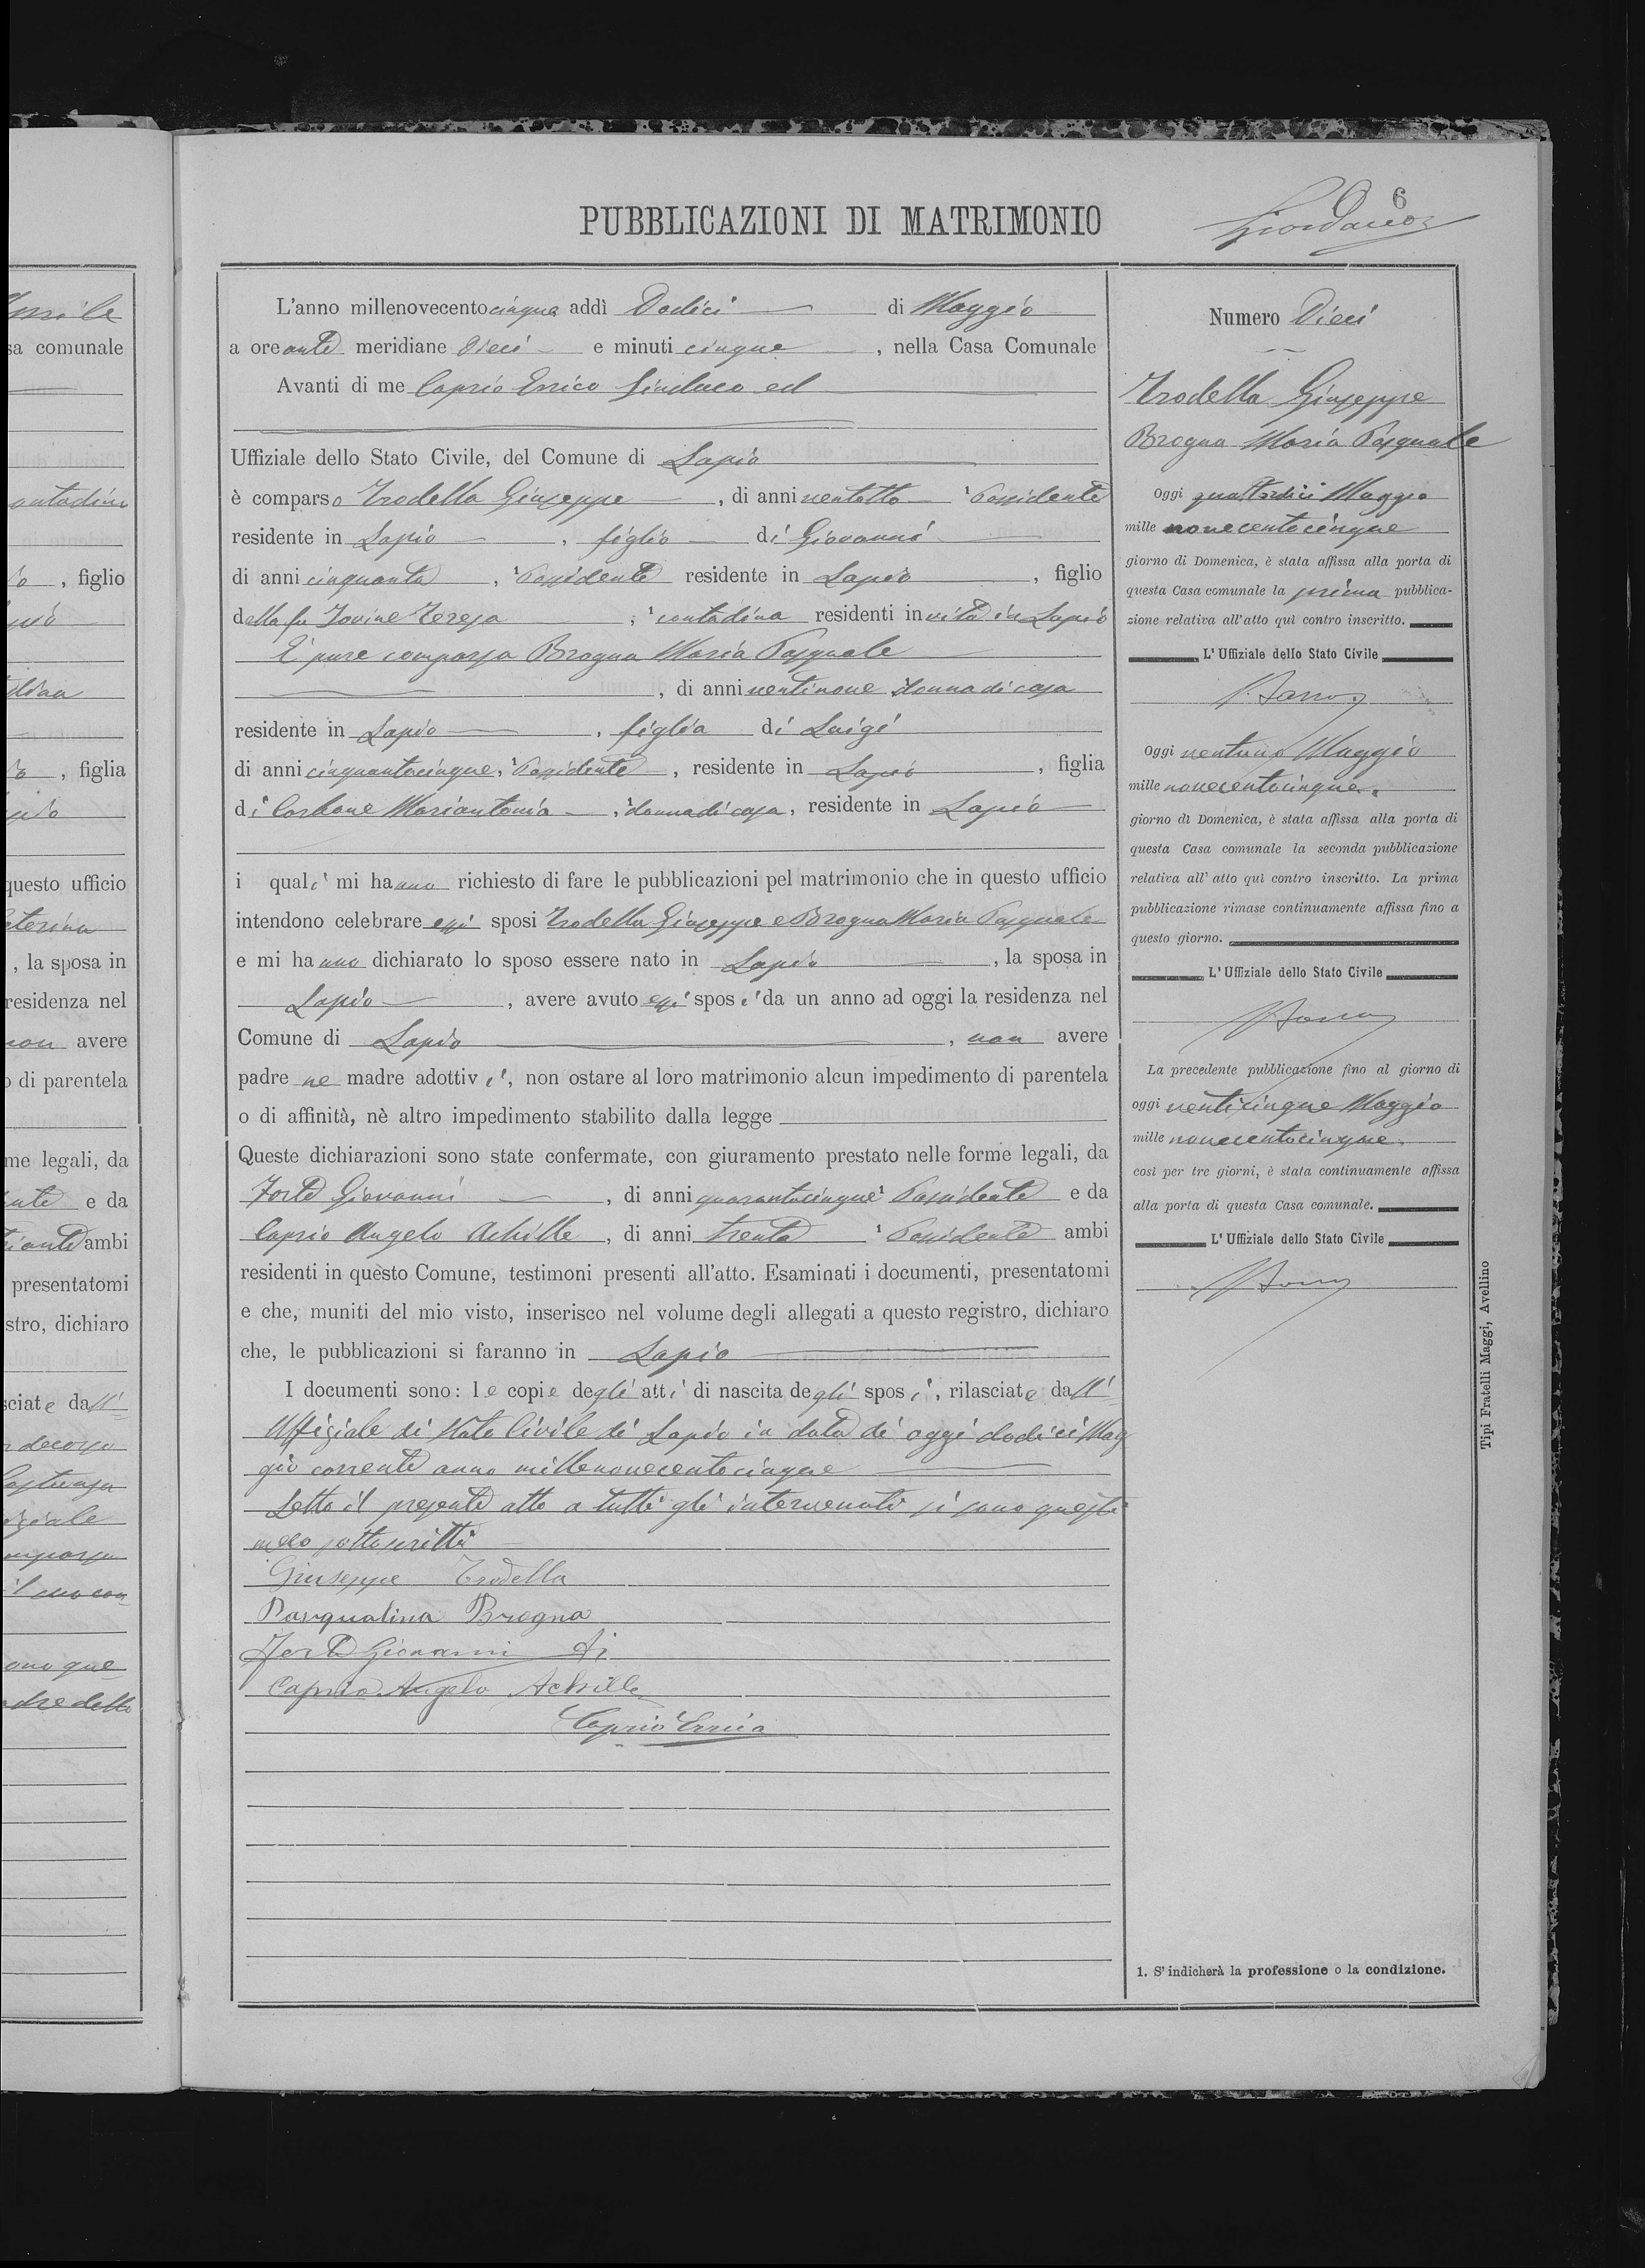 PUBBLICAZIONI DI MATRIMONIO
6
Giordano
L'anno millenovecentocinque addì Dodici di Maggio
a ore ante meridiane dieci e minuti cinque, nella Casa Comunale
Avanti di me Caprio Errico Sindaco ed
Uffiziale dello Stato Civile, del Comune di Lapio
è comparso Trodella Giuseppe, di anni ventotto ¹ Possidente
residente in Lapio, figlio di Giovanni
di anni cinquanta, ¹ Possidente residente in Lapio, figlio
della fu Iovine Teresa, ¹ contadina residenti in vita in Lapio
È pure comparsa Brogna Maria Pasquale
, di anni ventinove donna di casa
residente in Lapio, figlia di Luigi
di anni cinquantacinque, ¹ Possidente, residente in Lapio, figlia
di Carbone Mariantonia, ¹ donna di casa, residente in Lapio
i quali mi hanno richiesto di fare le pubblicazioni pel matrimonio che in questo ufficio
intendono celebrare essi sposi Trodella Giuseppe e Brogna Maria Pasquale
e mi hanno dichiarato lo sposo essere nato in Lapio, la sposa in
Lapio, avere avuto essi sposi da un anno ad oggi la residenza nel
Comune di Lapio, non avere
padre ne madre adottivi, non ostare al loro matrimonio alcun impedimento di parentela
o di affinità, nè altro impedimento stabilito dalla legge
Queste dichiarazioni sono state confermate, con giuramento prestato nelle forme legali, da
Forte Giovanni, di anni quarantacinque ¹ Possidente e da
Caprio Angelo Achille, di anni trenta ¹ Possidente ambi
residenti in questo Comune, testimoni presenti all'atto. Esaminati i documenti, presentatomi
e che, muniti del mio visto, inserisco nel volume degli allegati a questo registro, dichiaro
che, le pubblicazioni si faranno in Lapio
I documenti sono: le copie degli atti di nascita degli sposi, rilasciate dall'
Uffiziale di Stato Civile di Lapio in data di oggi dodici Mag
gio corrente anno millenovecentocinque
Letto il presente atto a tutti gli intervenuti si sono questi
meco sottoscritti
Giuseppe Trodella
Pasqualina Brogna
Forte Giovanni
Caprio Angelo Achille
Caprio Errico
Numero Dieci
Trodella Giuseppe
Brogna Maria Pasquale
Oggi quattordici Maggio
mille novecentocinque
giorno di Domenica, è stata affissa alla porta di
questa Casa comunale la prima pubblica-
zione relativa all'atto quì contro inscritto.
L'Uffiziale dello Stato Civile
Oggi ventuno Maggio
mille novecentocinque
giorno di Domenica, è stata affissa alla porta di
questa Casa comunale la seconda pubblicazione
relativa all'atto quì contro inscritto. La prima
pubblicazione rimase continuamente affissa fino a
questo giorno.
L'Uffiziale dello Stato Civile
La precedente pubblicazione fino al giorno di
oggi venticinque Maggio
mille novecentocinque
così per tre giorni, è stata continuamente affissa
alla porta di questa Casa comunale.
L'Uffiziale dello Stato Civile
1. S'indicherà la professione o la condizione.
Tipi Fratelli Maggi, Avellino